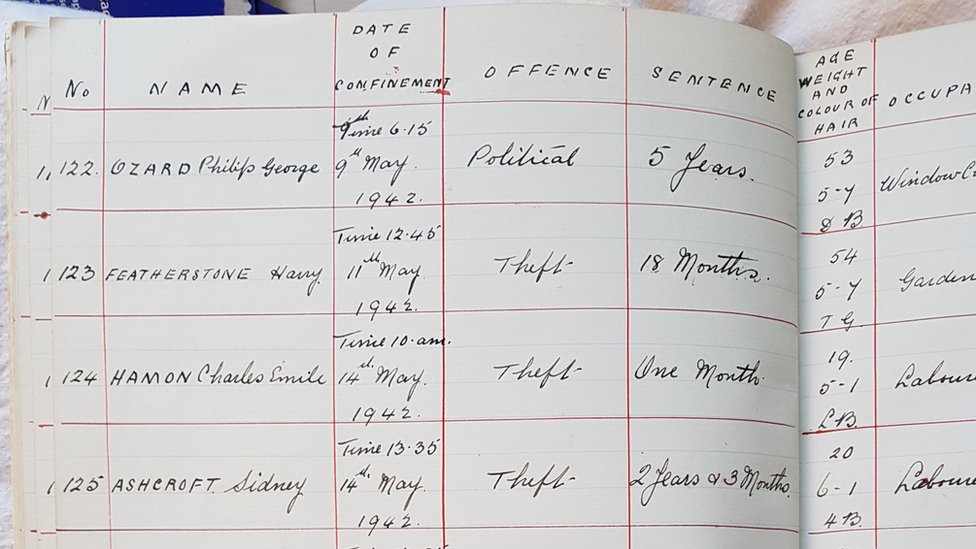 No NAME DATE OF CONFINEMENT OFFENCE SENTENCE AGE WEIGHT AND COLOUR OF HAIR OCCUPA
Time 6.15
122. OZARD Philip George 9th May. Political 5 Years. 53
1942. 5-7 Window
D B
Time 12.45
123 FEATHERSTONE Harry. 11th May Theft 18 Months. 54
1942. 5-7 Garden
T G.
Time 10.am.
124 HAMON Charles Emile 14th May. Theft One Month. 19.
1942. 5-1 Laboure
L B.
Time 13.35
125 ASHCROFT. Sidney 14th May. Theft 2 Years & 3 Months. 20
1942. 6-1 Laboure
4 B.